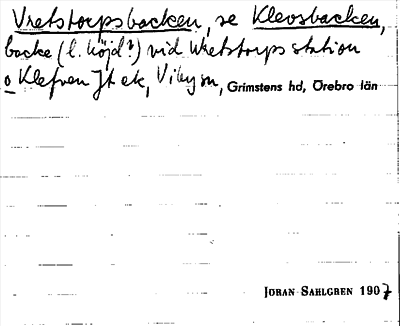 Vretstorpsbacken, se Klevsbacken,
backe (l. höjd?) vid Vretstorps station
o Klefven Jt ek, Viby sn, Grimstens hd, Örebro län
JÖRAN SAHLGREN 1907